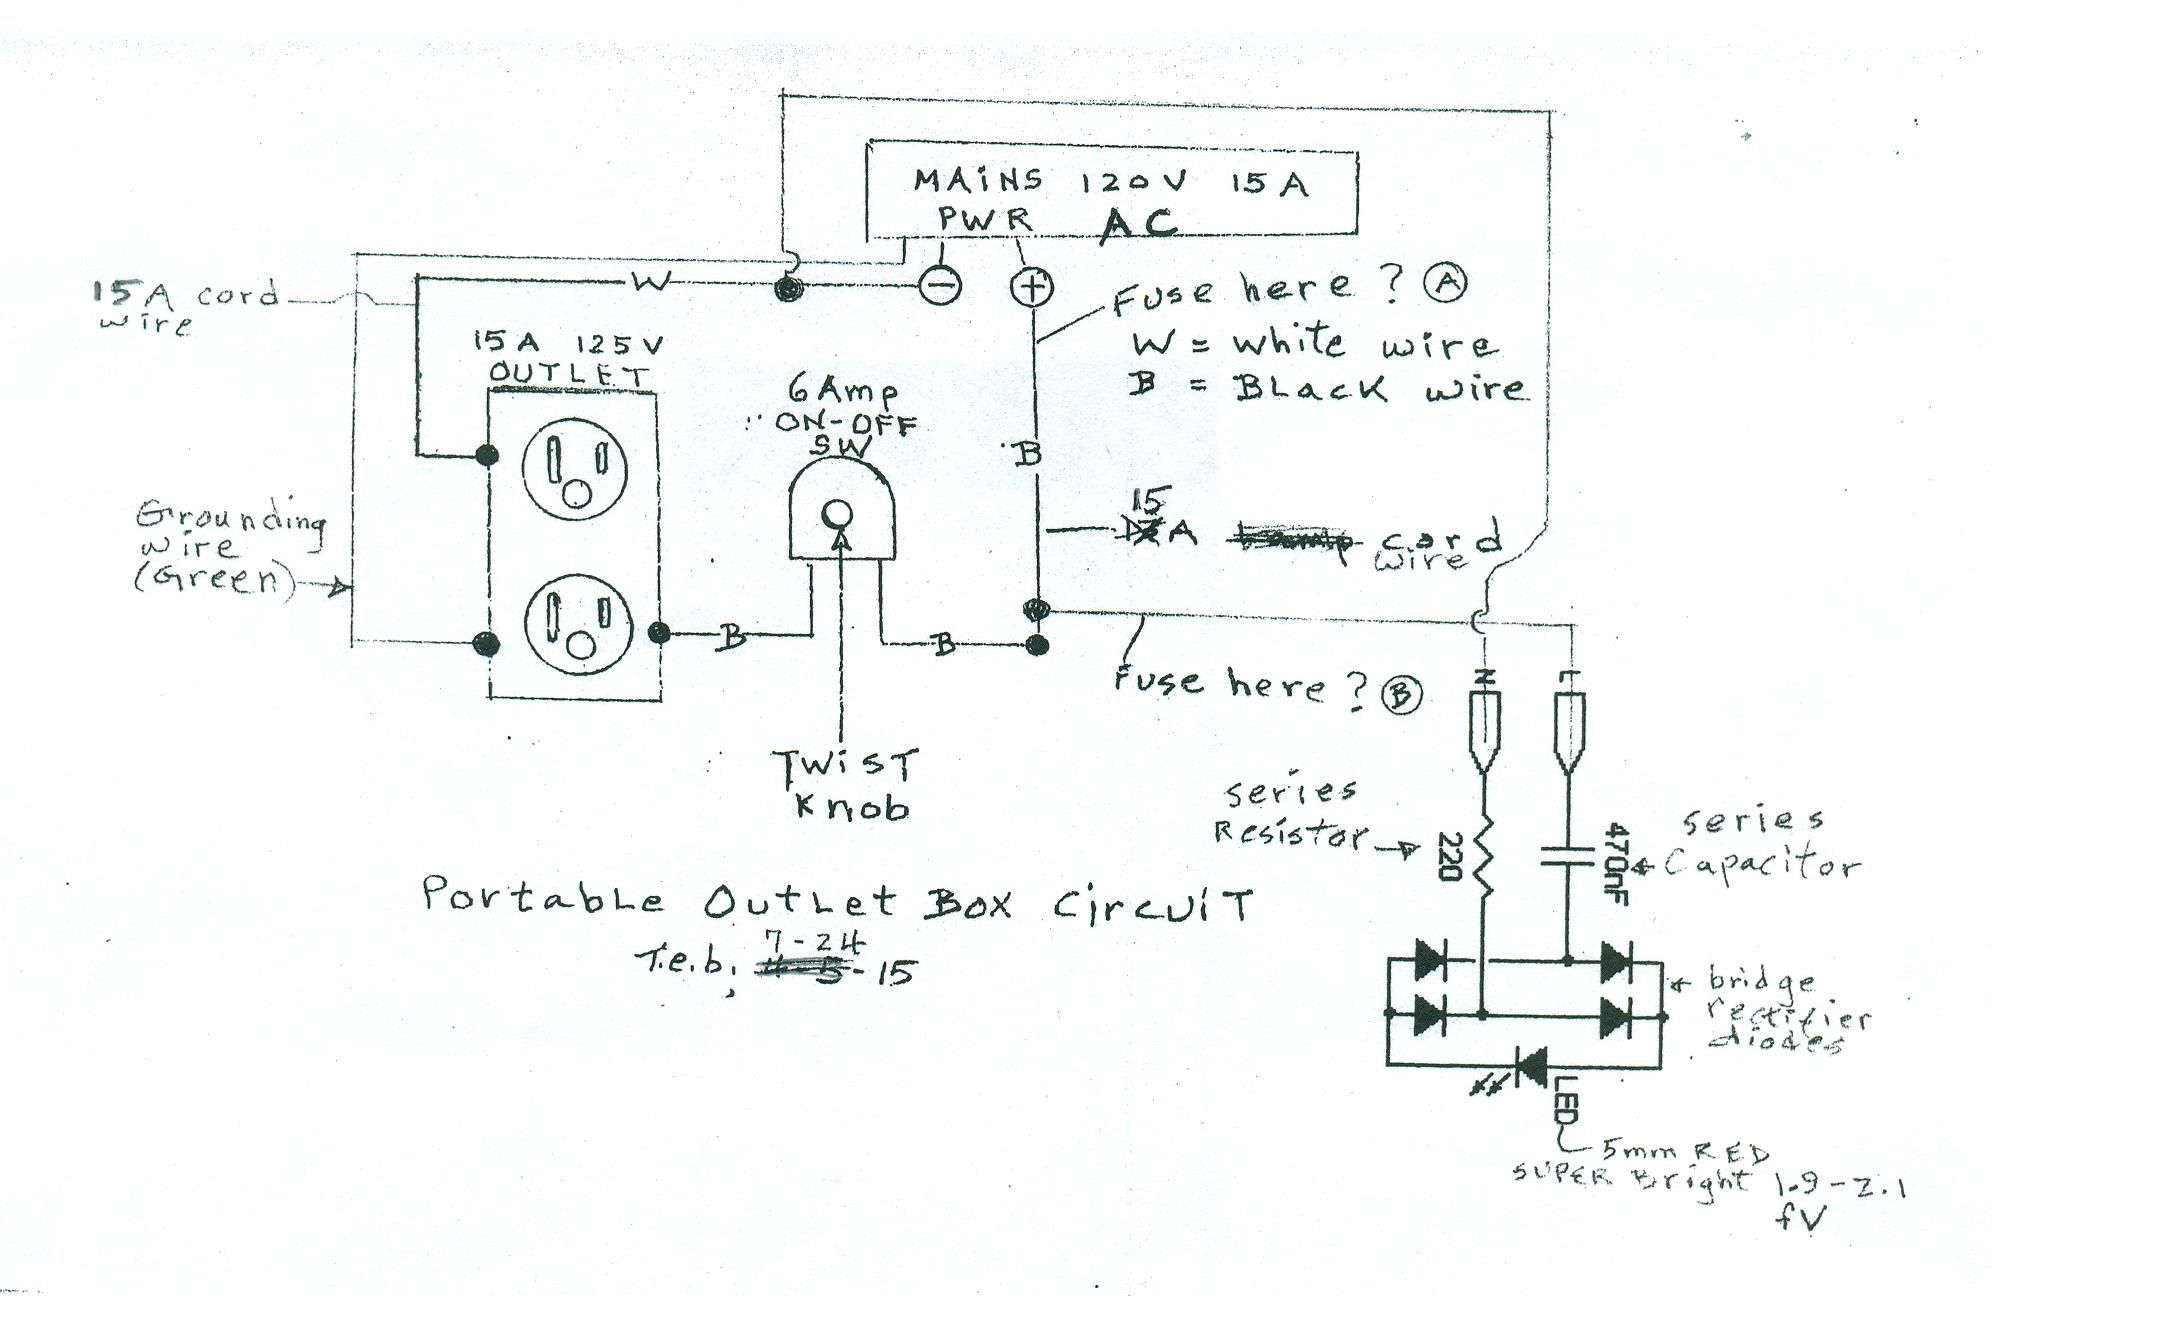 MAINS 120V 15A
PWR AC
− +
15A cord
wire
W
Fuse here ? A
W = white wire
B = BLack wire
15A 125V
OUTLET
6 Amp
ON-OFF
SW
B
15
A cord
wire
Grounding
wire
(Green)
B
B
Fuse here ? B
N
L
Twist
Knob
series
Resistor
220
470nF
series
Capacitor
Portable Outlet Box Circuit
T.e.b. 7-24-15
bridge
rectifier
diodes
LED
5mm RED
SUPER Bright 1.9-2.1
fV